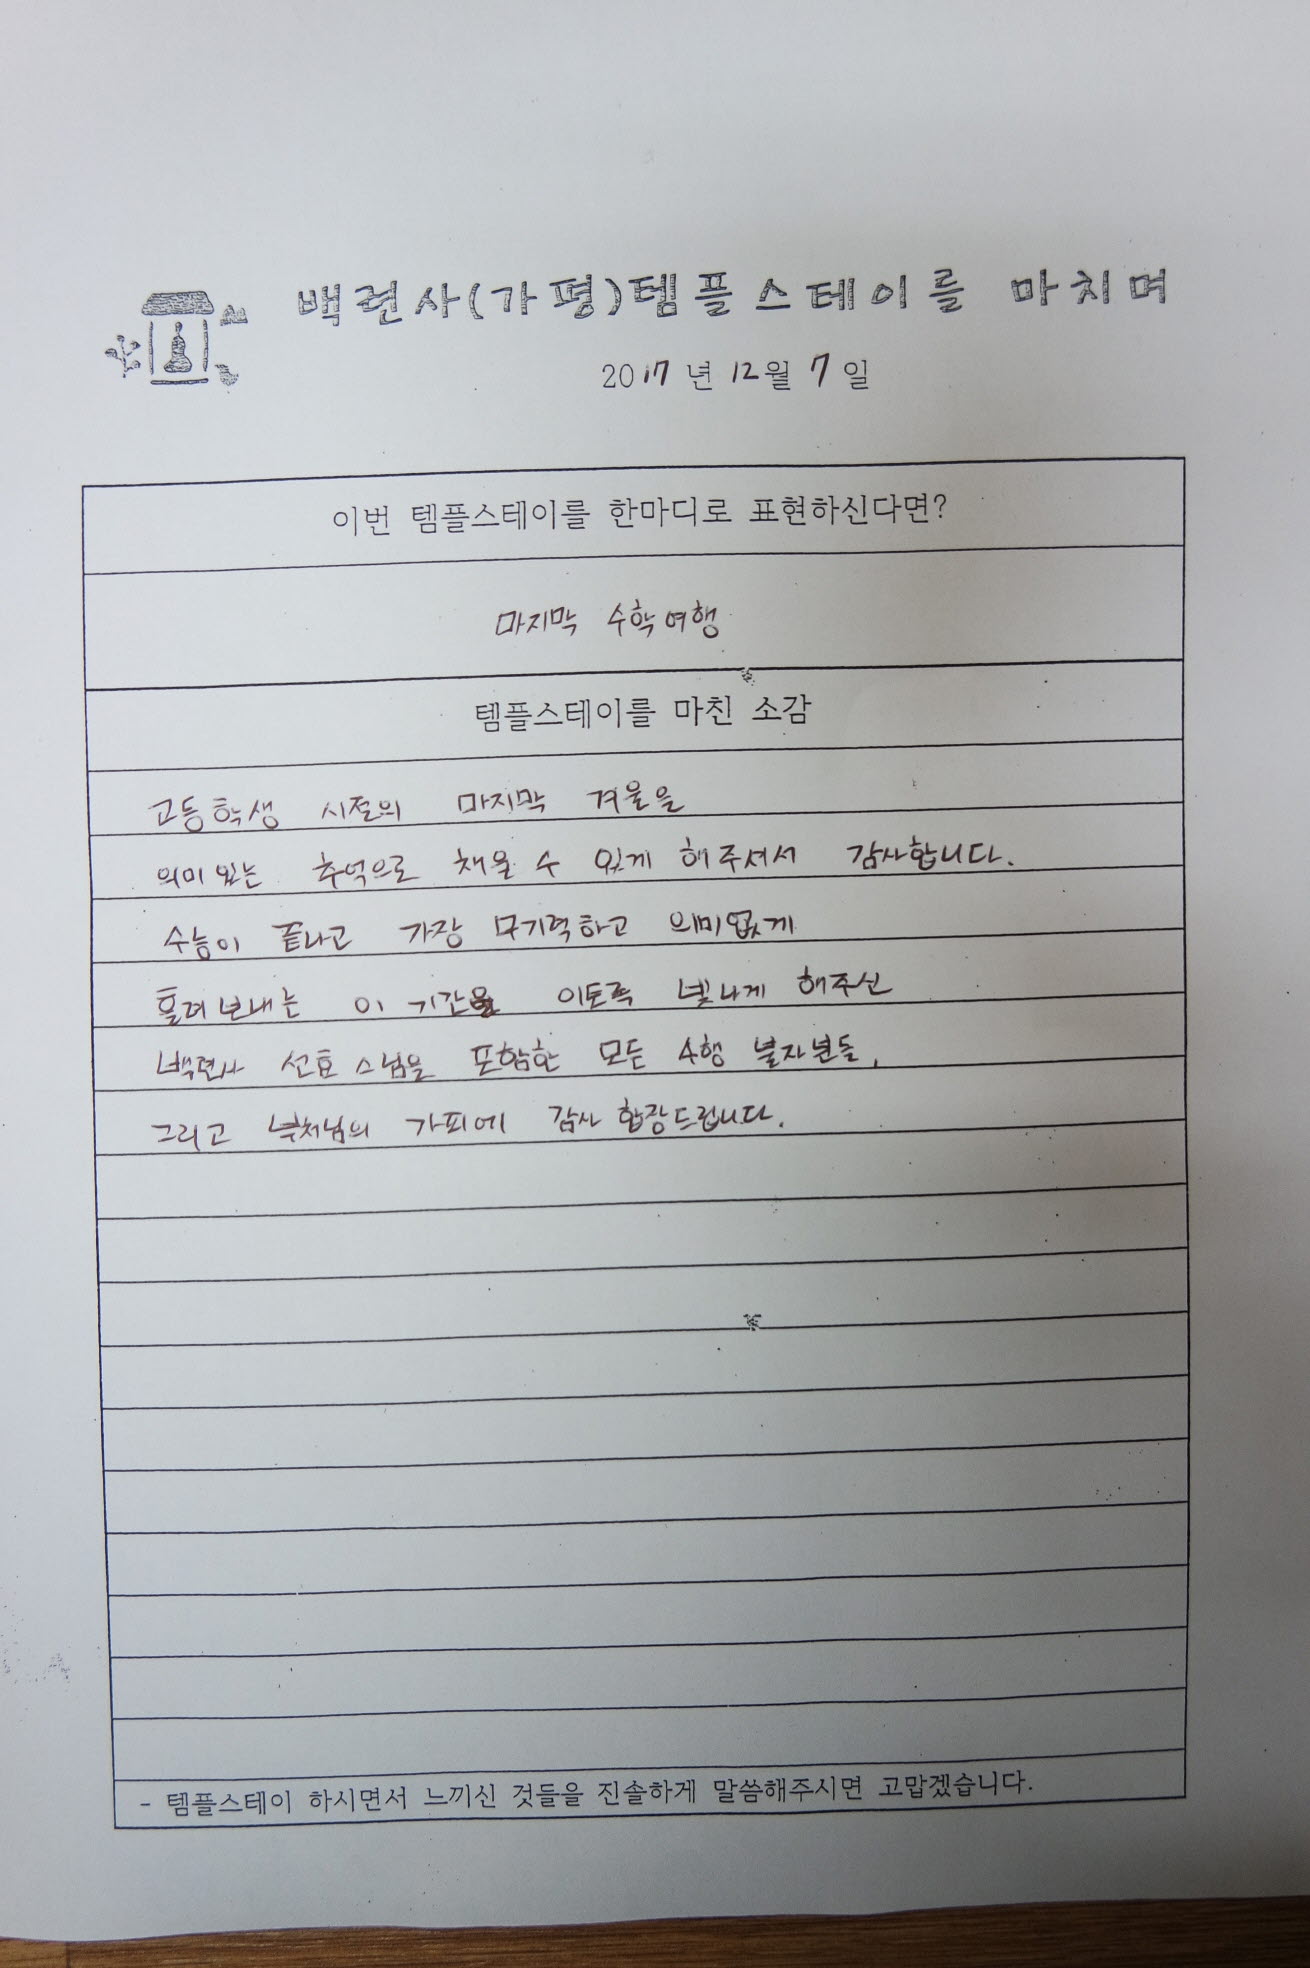 백련사(가평)템플스테이를 마치며
2017년 12월 7일
이번 템플스테이를 한마디로 표현하신다면?
마지막 수학여행
템플스테이를 마친 소감
고등학생 시절의 마지막 겨울을
의미있는 추억으로 채울 수 있게 해주셔서 감사합니다.
수능이 끝나고 가장 무기력하고 의미없게
흘려보내는 이 기간을 이토록 빛나게 해주신
백련사 선효 스님을 포함한 모든 수행 불자분들,
그리고 부처님의 가피에 감사 합장드립니다.
- 템플스테이 하시면서 느끼신 것들을 진솔하게 말씀해주시면 고맙겠습니다.